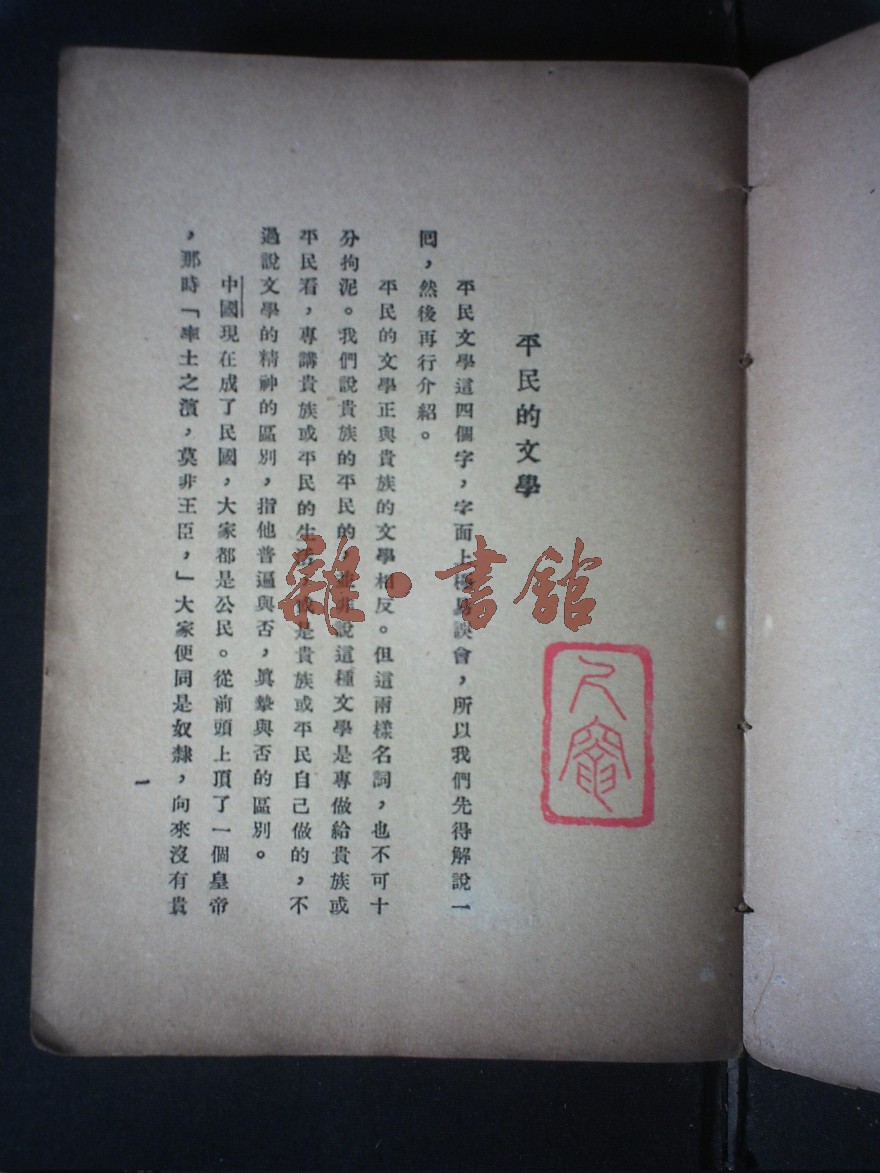 平民的文學
平民文學這四個字，字面上極易誤會，所以我們先得解說一
回，然後再行介紹。
平民的文學正與貴族的文學相反。但這兩樣名詞，也不可十
分拘泥。我們說貴族的平民的，並非說這種文學是專做給貴族或
平民看，專講貴族或平民的生活，或是貴族或平民自己做的，不
過說文學的精神的區別，指他普遍與否，眞摯與否的區別。
中國現在成了民國，大家都是公民。從前頭上頂了一個皇帝
，那時「率土之濱，莫非王臣，」大家便同是奴隸，向來沒有貴
一
雜·書館